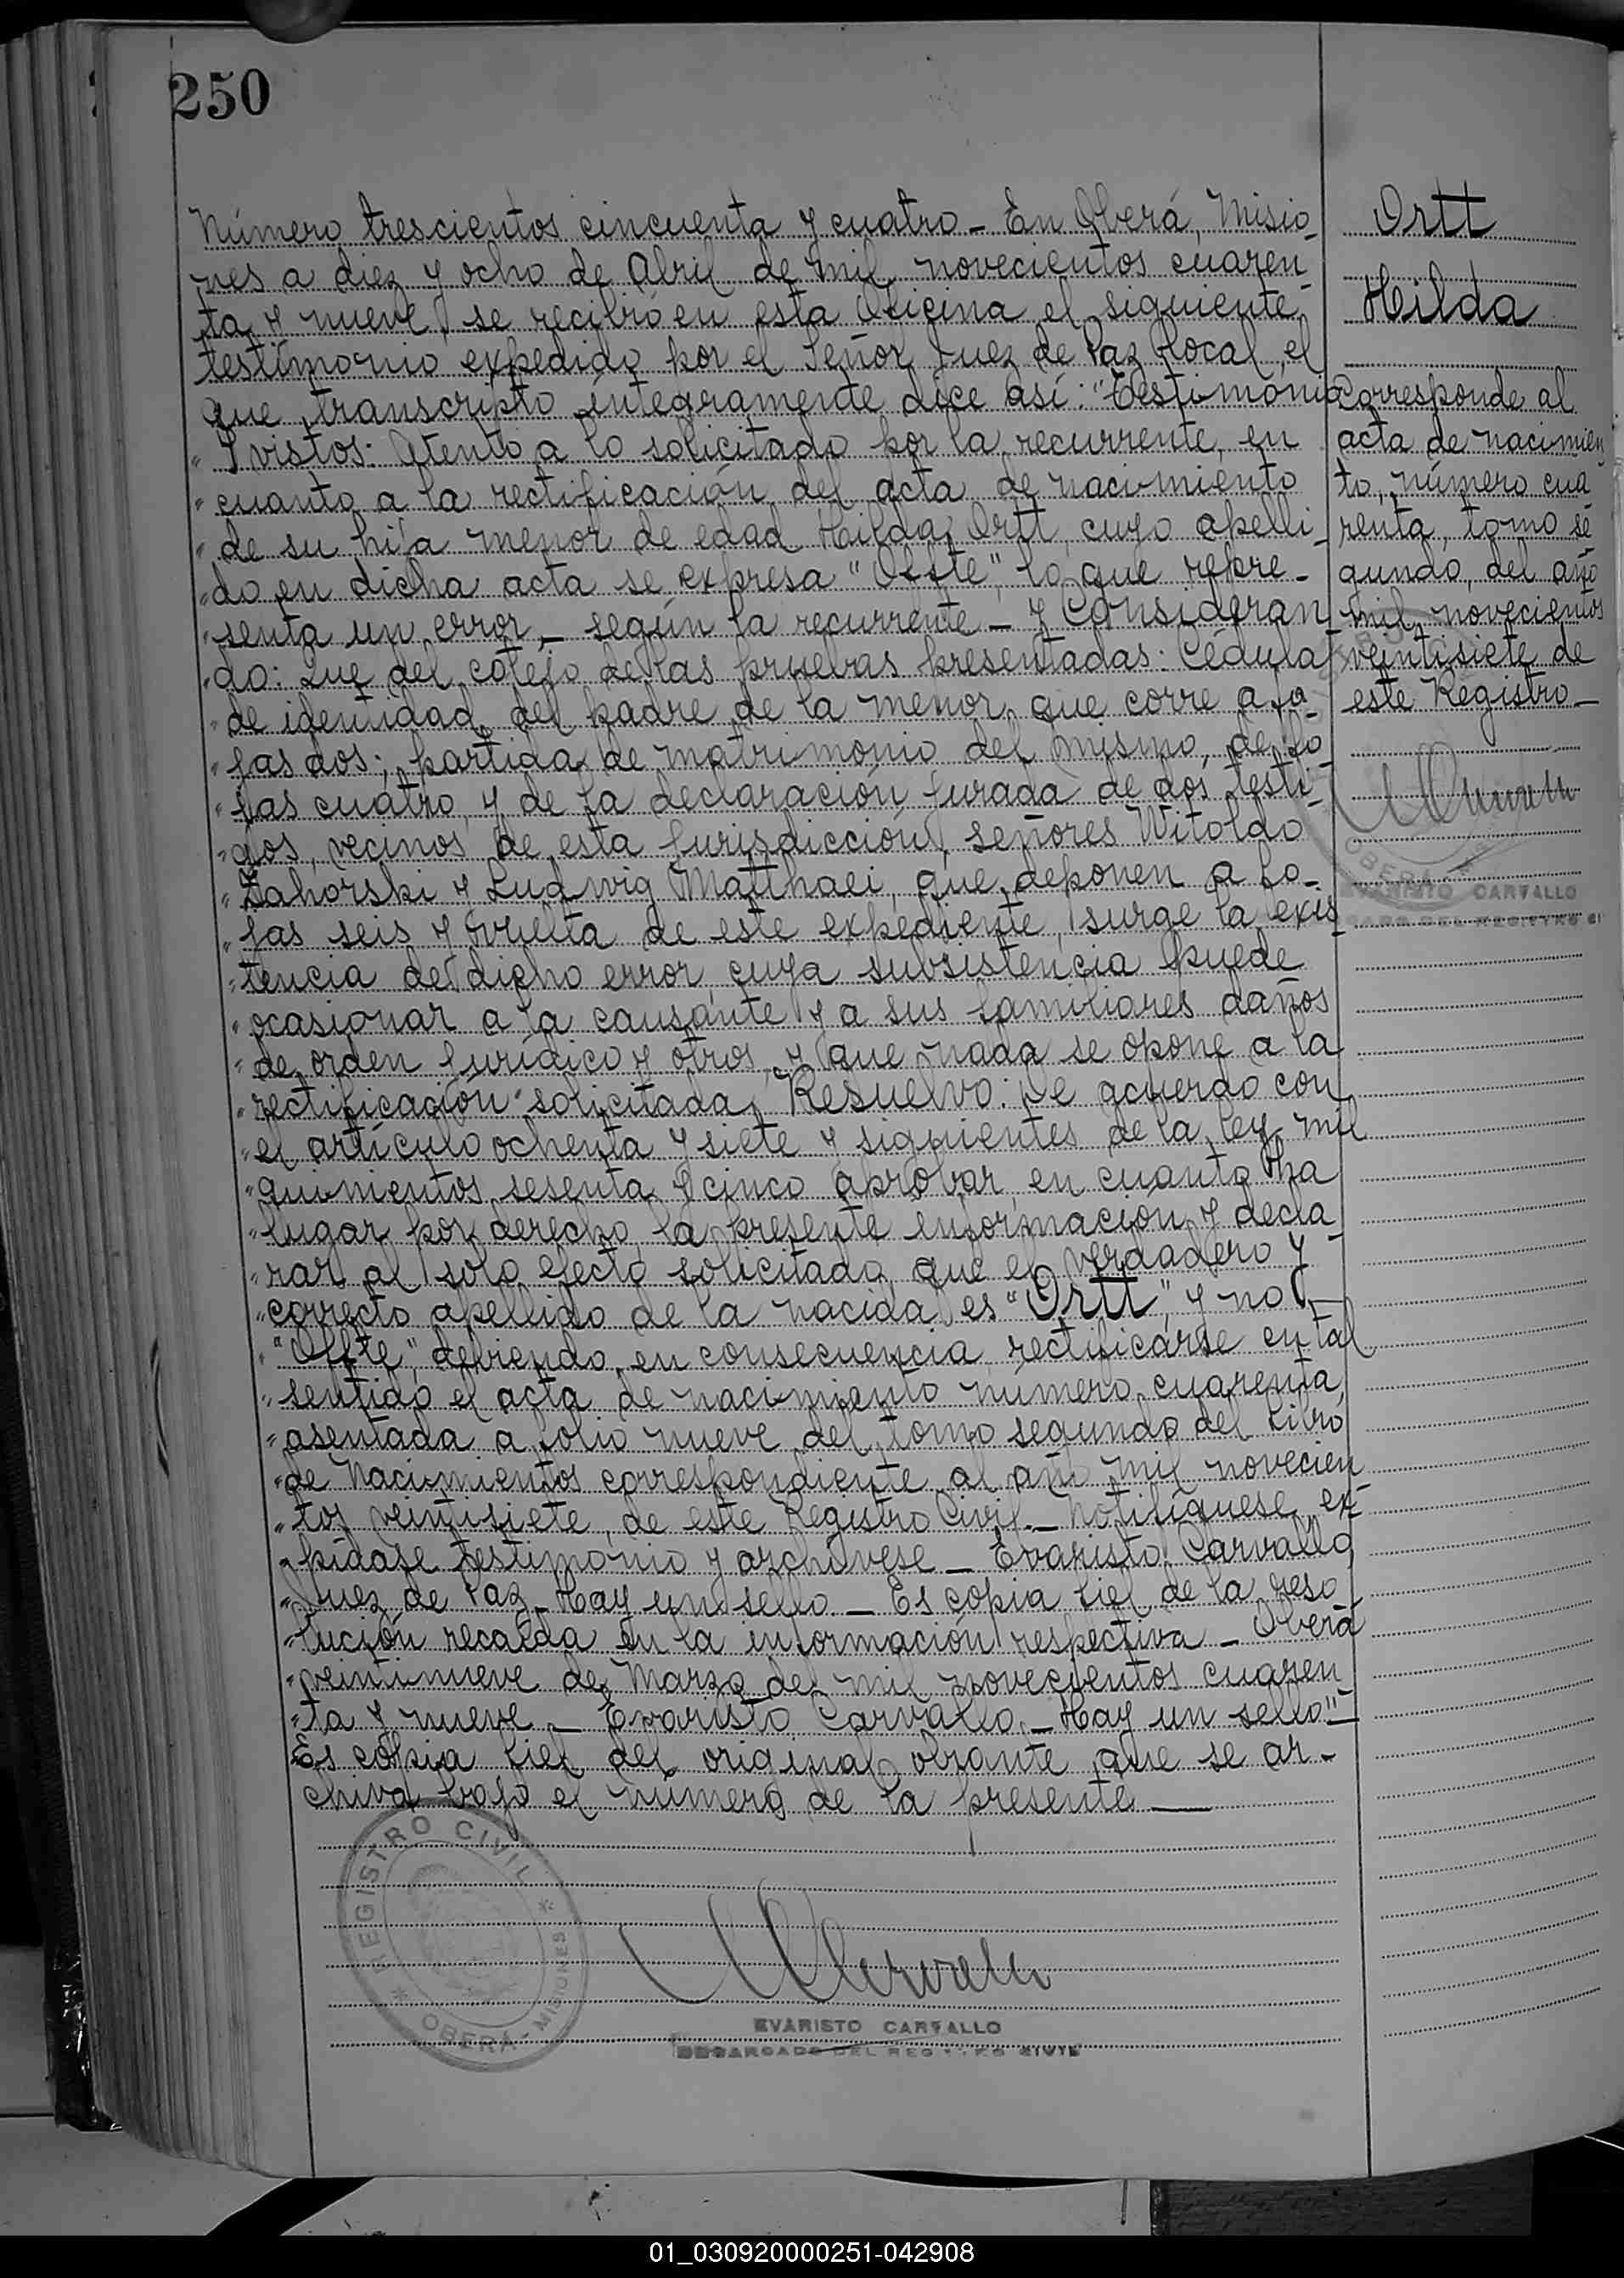 250
Número trescientos cincuenta y cuatro - En Oberá, Misio-
nes a diez y ocho de Abril de mil novecientos cuaren-
ta y nueve, se recibió en esta Oficina el siguiente
testimonio expedido por el Señor Juez de Paz local el
que transcripto íntegramente dice así: "Testimonio
" Y vistos: Atento a lo solicitado por la recurrente, en
" cuanto a la rectificación del acta de nacimiento
" de su hija menor de edad Hilda Ortt, cuyo apelli-
" do en dicha acta se expresa "Offte", lo que repre-
" senta un error, - según la recurrente - y Consideran-
" do: Que del cotejo de las pruebas presentadas: Cédula
" de identidad del padre de la menor que corre a fo-
" jas dos; partida de matrimonio del mismo, de fo-
" jas cuatro, y de la declaración jurada de dos testi-
" gos, vecinos de esta jurisdicción, señores Witoldo
" Zahorski y Ludwig Matthaei, que deponen a fo-
" jas seis y vuelta de este expediente, surge la exis-
" tencia de dicho error, cuya subsistencia puede
" ocasionar a la causante y a sus familiares daños
" de orden jurídico y otros, y que nada se opone a la
" rectificación solicitada, Resuelvo: De acuerdo con
" el artículo ochenta y siete y siguientes de la ley mil
" quinientos sesenta y cinco aprobar, en cuanto ha
" lugar por derecho la presente información y decla-
" rar al solo efecto solicitado que el verdadero y
" correcto apellido de la nacida es "Ortt", y no -
" "Offte", debiendo, en consecuencia rectificarse en tal
" sentido el acta de nacimiento número cuarenta,
" asentada a folio nueve del tomo segundo del Libro
" de Nacimientos correspondiente al año mil novecien-
" tos veintisiete, de este Registro Civil. - Notifíquese, ex-
" pídase testimonio y archívese - Evaristo Carvallo,
" Juez de Paz - Hay un sello. - Es copia fiel de la reso-
" lución recaída en la información respectiva - Oberá
" veintinueve de Marzo de mil novecientos cuaren-
" ta y nueve - Evaristo Carvallo. - Hay un sello" -
Es copia fiel del original obrante que se ar-
chiva bajo el número de la presente
Ortt
Hilda
Corresponde al
acta de nacimien
to, número cua-
renta, tomo se-
gundo, del año
mil novecientos
veintisiete de
este Registro -
OBERA
EVARISTO CARVALLO
REGISTRO CIVIL
OBERA - MISIONES
EVARISTO CARVALLO
ENCARGADO DEL REGISTRO CIVIL
01_030920000251-042908